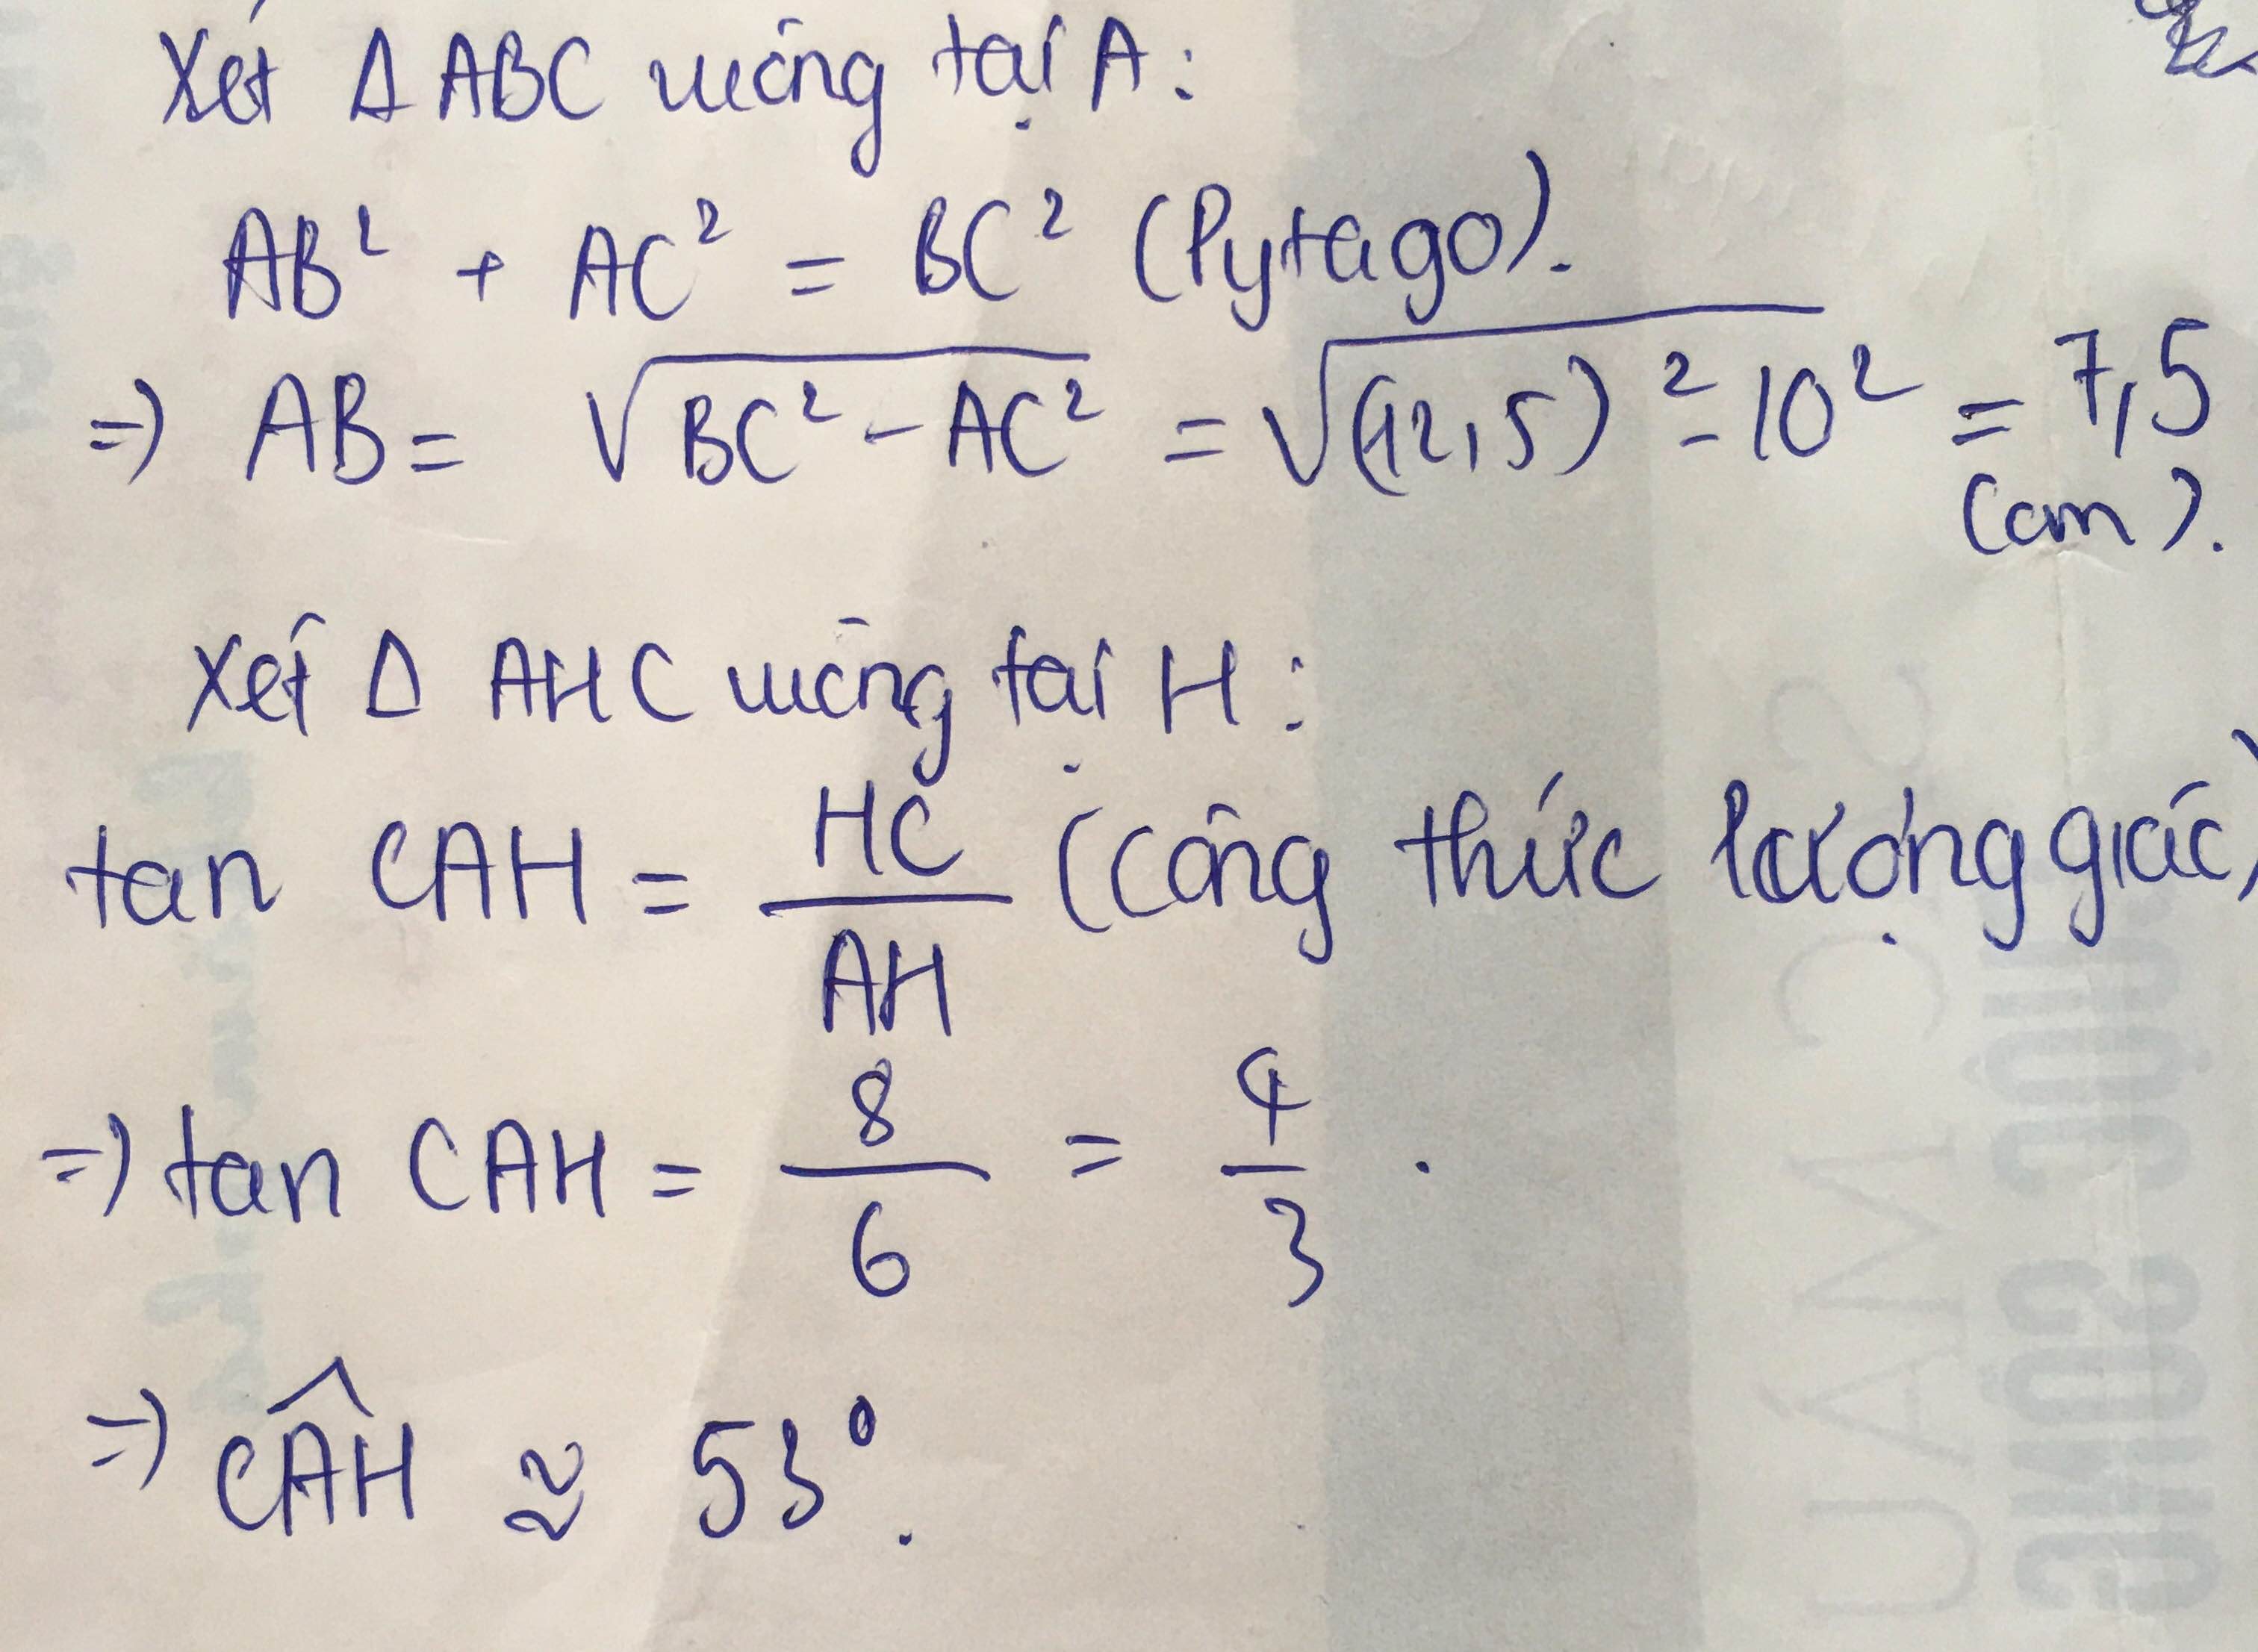 Xét Δ ABC vuông tại A:
AB² + AC² = BC² (Pytago).
=> AB = √(BC² - AC²) = √((12,5)² - 10²) = 7,5
(cm).
Xét Δ AHC vuông tại H:
tan CAH = HC/AH (công thức lượng giác)
=> tan CAH = 8/6 = 4/3.
=> CAH ≈ 53°.